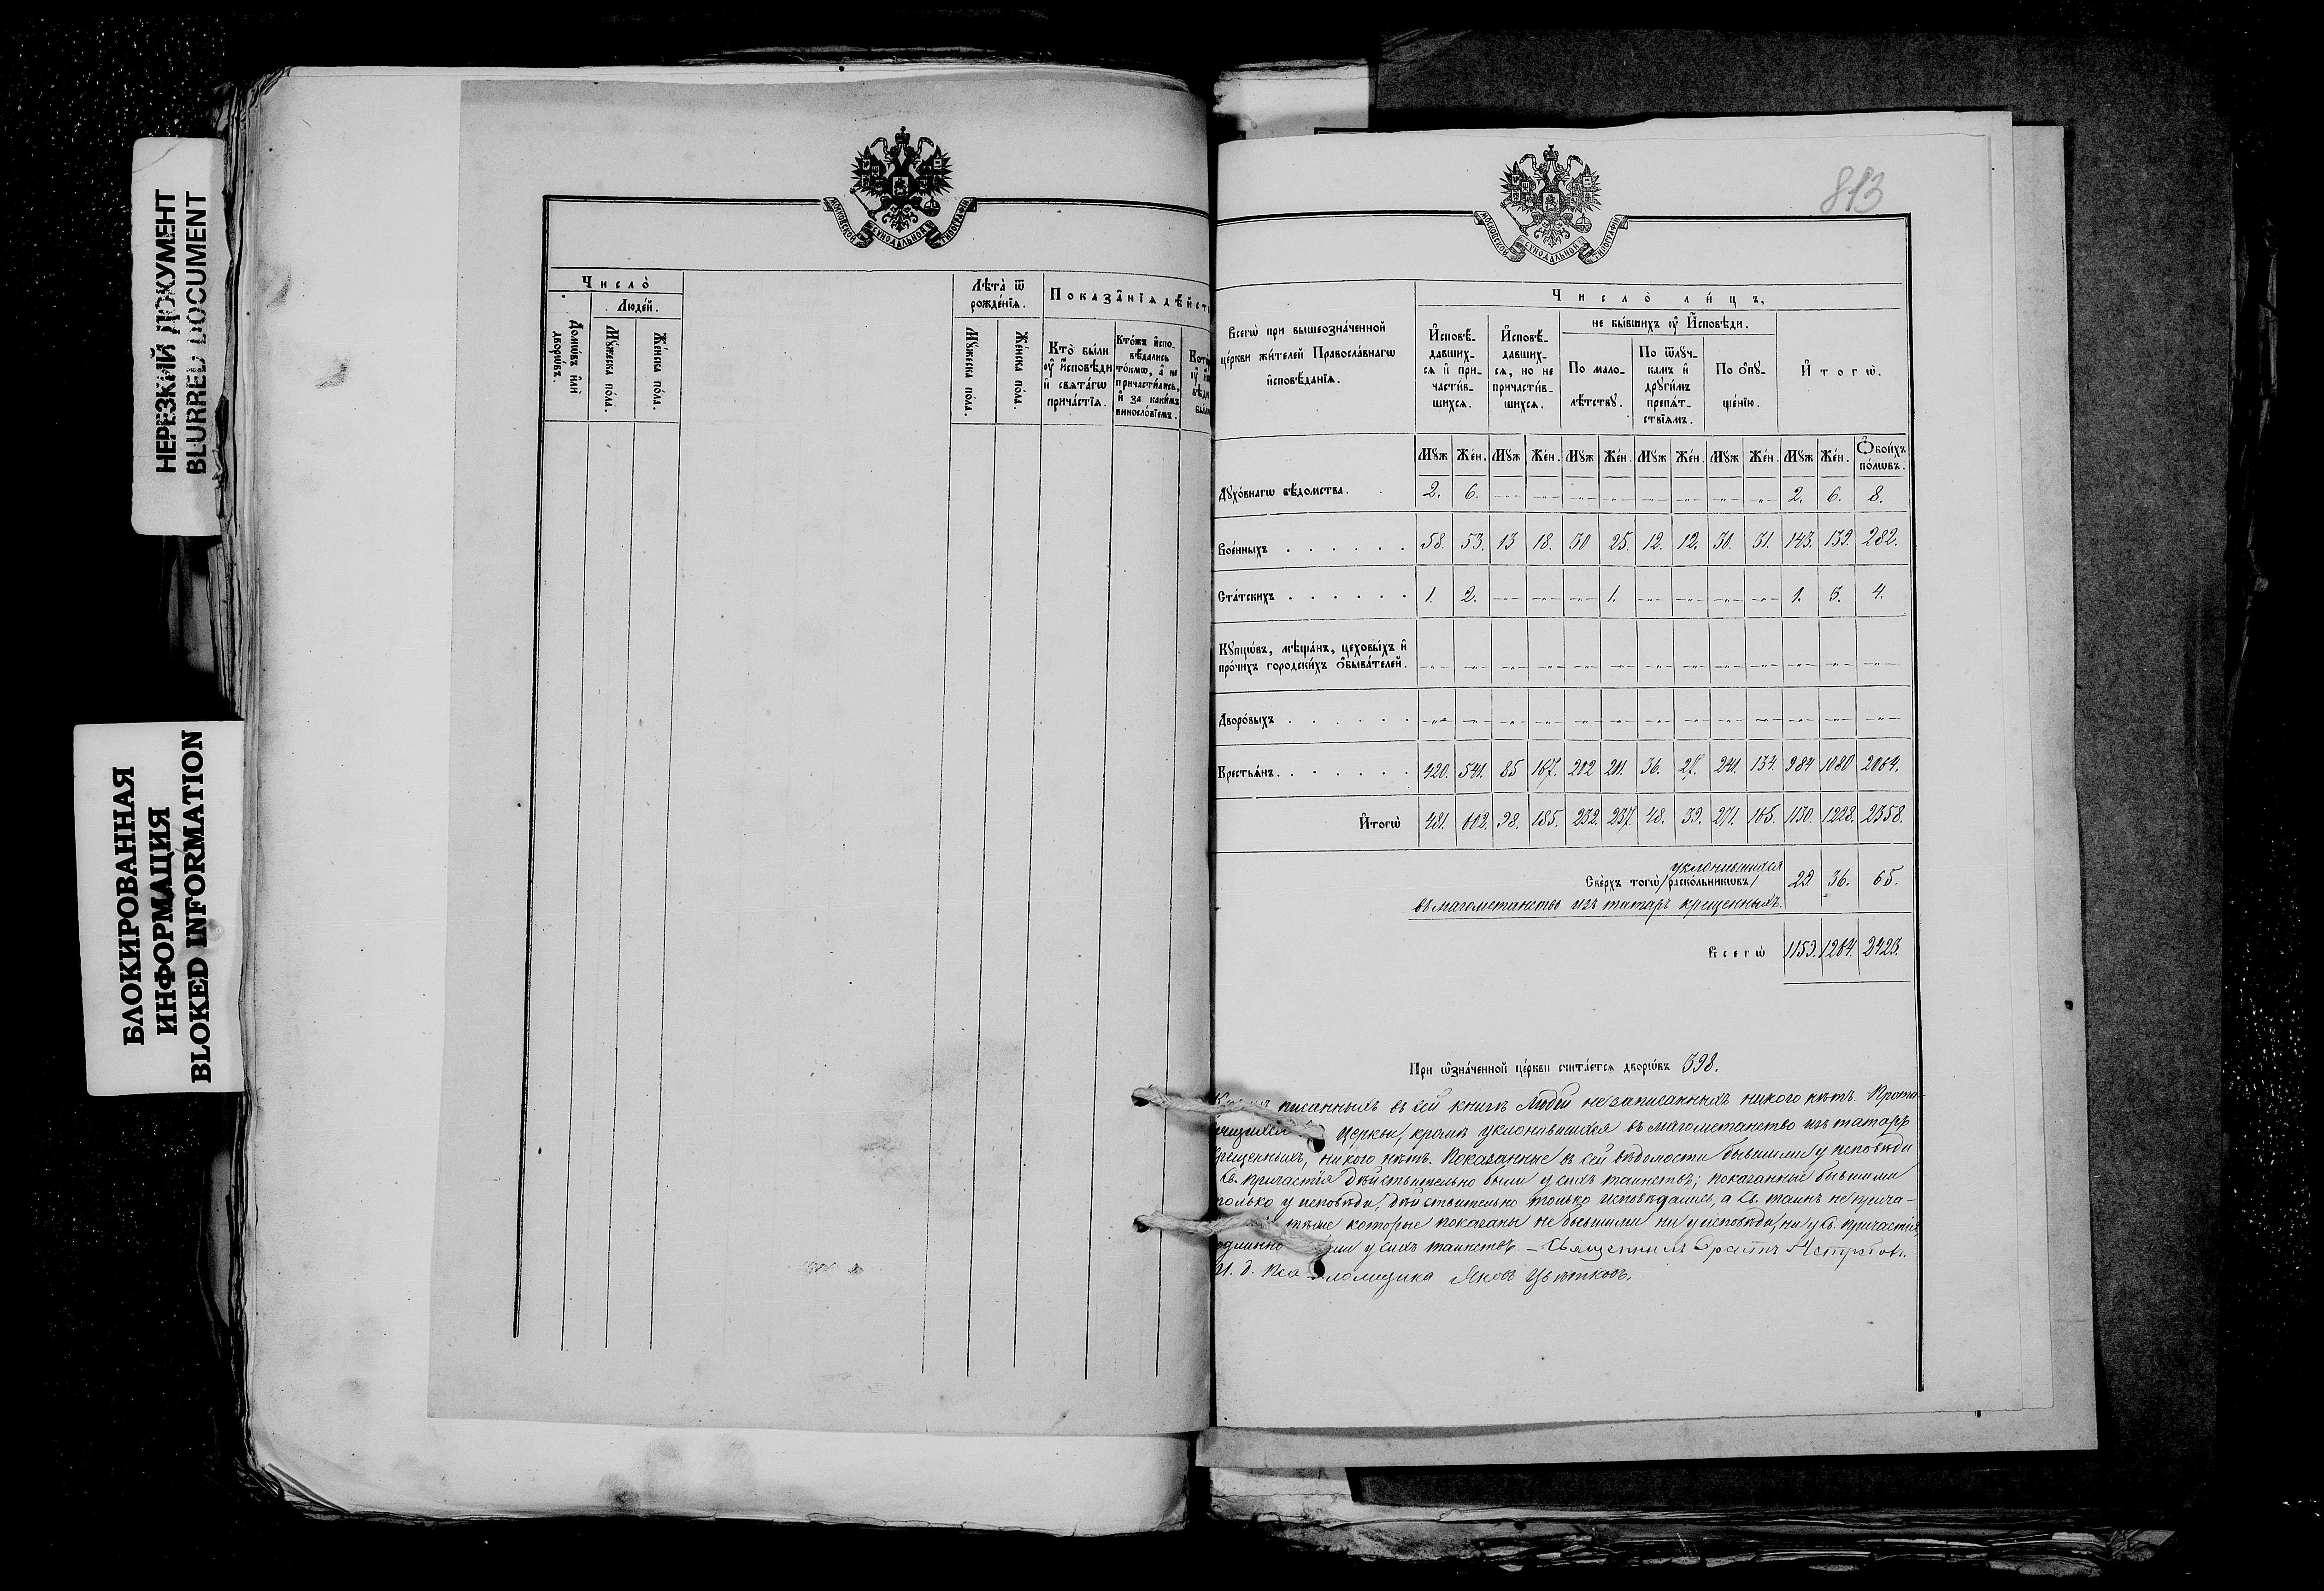 НЕРЕЗКИЙ ДОКУМЕНТ
BLURRED DOCUMENT
БЛОКИРОВАННАЯ
ИНФОРМАЦИЯ
BLOKED INFORMATION
МОСКОВСКОЙ СѴНОДАЛЬНОЙ ТИПОГРАФІИ
Число̀
Люде́й.
Домѡ́въ и҆лѝ дворѡ́въ.
Мꙋ́жеска по́ла.
Же́нска по́ла.
Лѣта̀ ѿ рожде́нїѧ.
Мꙋ́жеска по́ла.
Же́нска по́ла.
Показа̑нїѧ дѣйст
Кто̀ бы́ли ᲂу҆ И҆сповѣди и҆ свѧта́гѡ прича́стїѧ.
Кто́жъ и҆спо-вѣдались то́кмѡ, а҆ не причасти́лись, и҆ за каки́мъ винослов́їемъ.
813
МОСКОВСКОЙ СѴНОДАЛЬНОЙ ТИПОГРАФІИ
Всегѡ̀ при вышеозна́ченной це́ркви жи́телей Правосла́внагѡ и҆сповѣ́данїѧ.
Число̀ ли́цъ,
И҆сповѣ-давших-сѧ и҆ при-части́в-шихсѧ.
И҆сповѣ-давших-сѧ, но не причасти́в-шихсѧ.
не бы́вшихъ ᲂу҆ И҆сповѣди.
По мало-лѣ́тствꙋ.
По ѿлꙋч-камъ и҆ дрꙋги́мъ препѧ́т-ствїѧмъ.
По ѻ҆пꙋ-ще́нїю.
И҆тогѡ̀.
Мꙋж Же́н. Мꙋж Же́н. Мꙋж Же́н. Мꙋж Же́н. Мꙋж Же́н. Мꙋж Же́н. Ѻ҆бои́хъ по́лѡвъ.
Дꙋхо́внагѡ вѣ́домства. 2. 6. -„- -„- -„- -„- -„- -„- -„- -„- 2. 6. 8.
Вое́нныхъ . . . . . . 58. 53. 13 18. 30 25. 12. 12. 30. 31. 143. 139. 282.
Ста́тскихъ . . . . . . 1. 2. -„- -„- -„- 1. -„- -„- -„- -„- 1. 3. 4.
Кꙋпцѡ́въ, мѣща́нъ, цеховы́хъ и҆
про́чихъ городски́хъ ѻ҆быва́телей. -„- -„- -„- -„- -„- -„- -„- -„- -„- -„- -„- -„- -„-
Дворо́выхъ . . . . . . -„- -„- -„- -„- -„- -„- -„- -„- -„- -„- -„- -„- -„-
Крестьѧ́нъ. . . . . . . 420. 541. 85 167. 202 211. 36. 27. 241. 134. 984 1080 2064.
И҆тогѡ̀ 481. 602. 98. 185. 232. 237. 48. 39. 271. 165. 1130. 1228. 2358.
уклонившихся
Све́рхъ тогѡ̀ /раско́льникѡвъ/ 29 36. 65.
въ магометанство изъ татаръ крещенныхъ.
Всегѡ̀ 1159. 1264. 2423.
При ѡ҆зна́ченной це́ркви счита́етсѧ дворѡ́въ 398.
писанныхъ въ сей книгѣ людей не записанныхъ никого нѣтъ. Проти-
церкви, кромѣ уклонившихся въ магометанство изъ татаръ
крещенныхъ, никого нѣтъ. Показанные въ сей вѣдомости бывшими у исповѣди
Св. причастія дѣйствительно были у сихъ таинствъ; показанные бывшими
только у исповѣди, дѣйствительно только исповѣдались, а Св. таинъ не прича-
тѣже которые показаны не бывшими ни у исповѣди, ни у Св. причастія,
у сихъ таинствъ. – Священникъ
И. д. псаломщика Яковъ Цвѣтковъ.